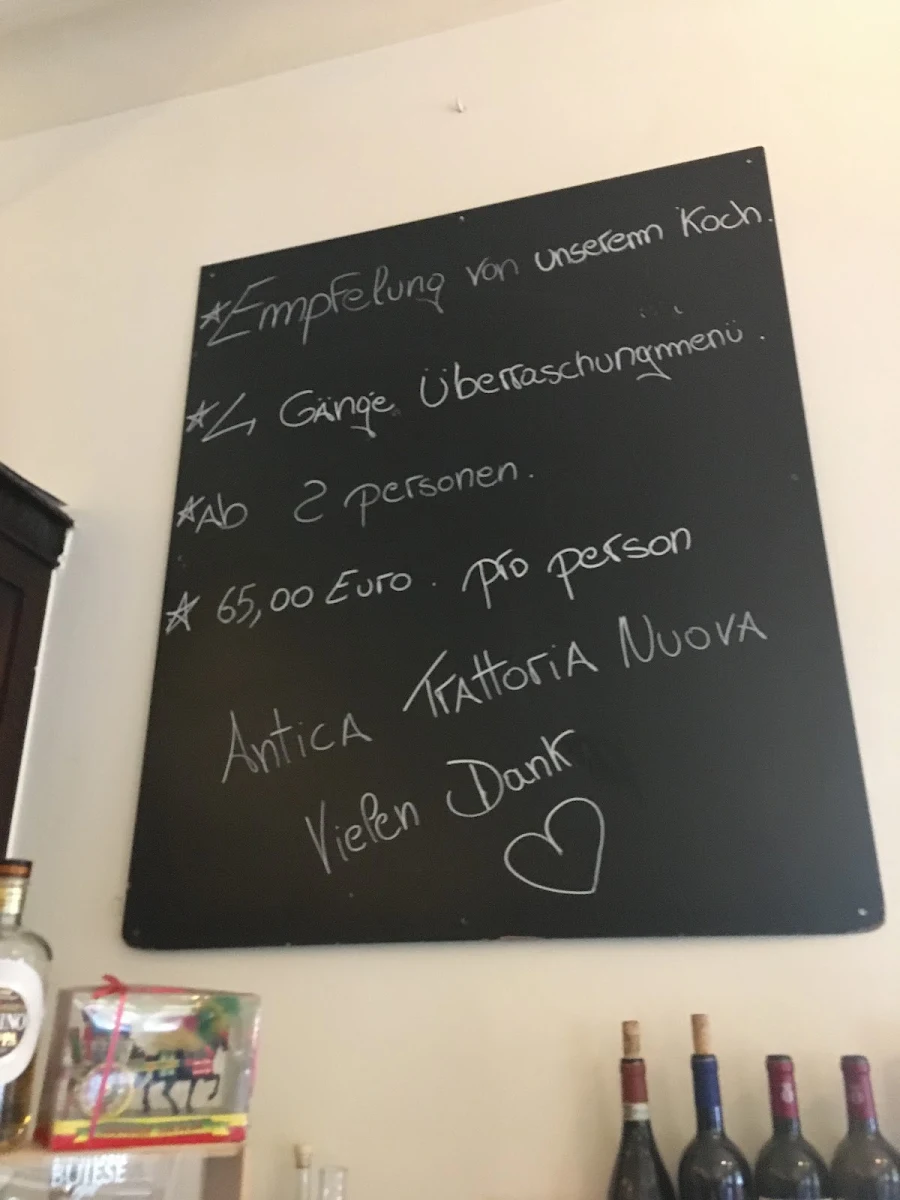 *Empfelung von unserem Koch.
*4 Gänge Überraschungmenü.
*Ab 2 personen.
*65,00 Euro. pro person
Antica Trattoria Nuova
Vielen Dank